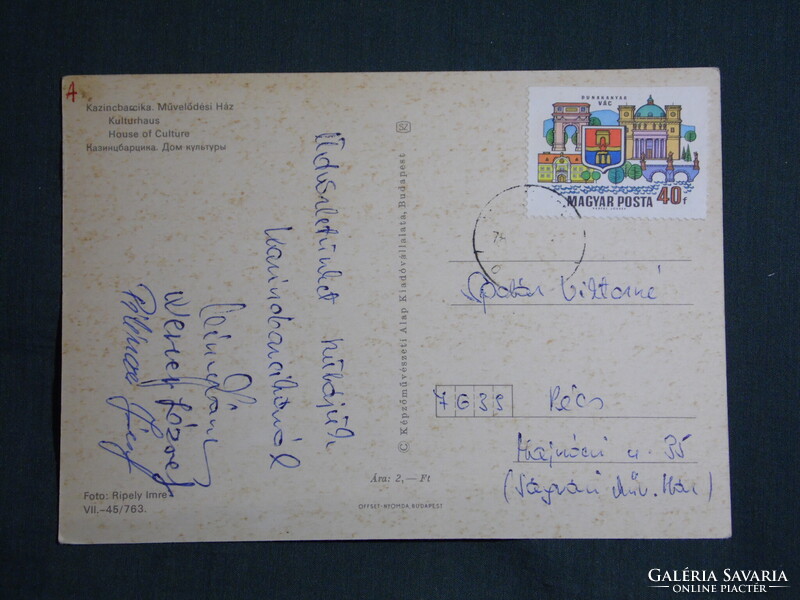 A
Kazincbarcika. Művelődési Ház
Kulturhaus
House of Culture
Казинцбарцика. Дом культуры
Üdvözletünket küldjük
Kazincbarcikáról
József
Foto: Ripely Imre
VII.—45/763.
© Képzőművészeti Alap Kiadóvállalata, Budapest
Ára: 2,— Ft
OFFSET-NYOMDA, BUDAPEST
DUNAKANYAR
VÁC
MAGYAR POSTA 40f
74
Viktorné
7635 Pécs
Hajnóczi u. 35
(Ságvári Műv. Ház)
GALÉRIA SAVARIA
ONLINE PIACTÉR